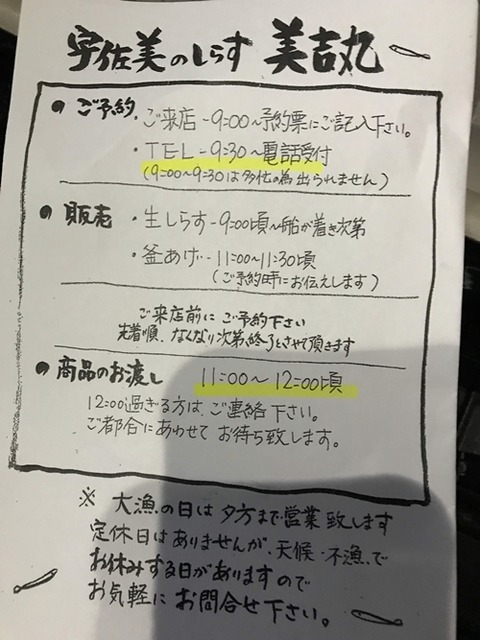 宇佐美のしらす 美吉丸
● ご予約 ・ご来店-9:00~予約票にご記入下さい。
・TEL-9:30~電話受付
(9:00~9:30は多忙の為出られません)
● 販売 ・生しらす-9:00頃~船が着き次第
・釜あげ--11:00~11:30頃
(ご予約時にお伝えします)
ご来店前にご予約下さい
先着順、なくなり次第、終了とさせて頂きます
● 商品のお渡し 11:00~12:00頃
12:00過ぎる方は、ご連絡下さい。
ご都合にあわせてお待ち致します。
※ 大漁の日は夕方まで営業致します
定休日はありませんが、天候・不漁で
お休みする日がありますので
お気軽にお問合せ下さい。